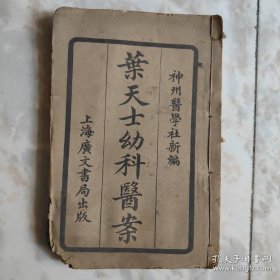 神州醫學社新編
葉天士幼科醫案
上海廣文書局出版
孔夫子旧书网